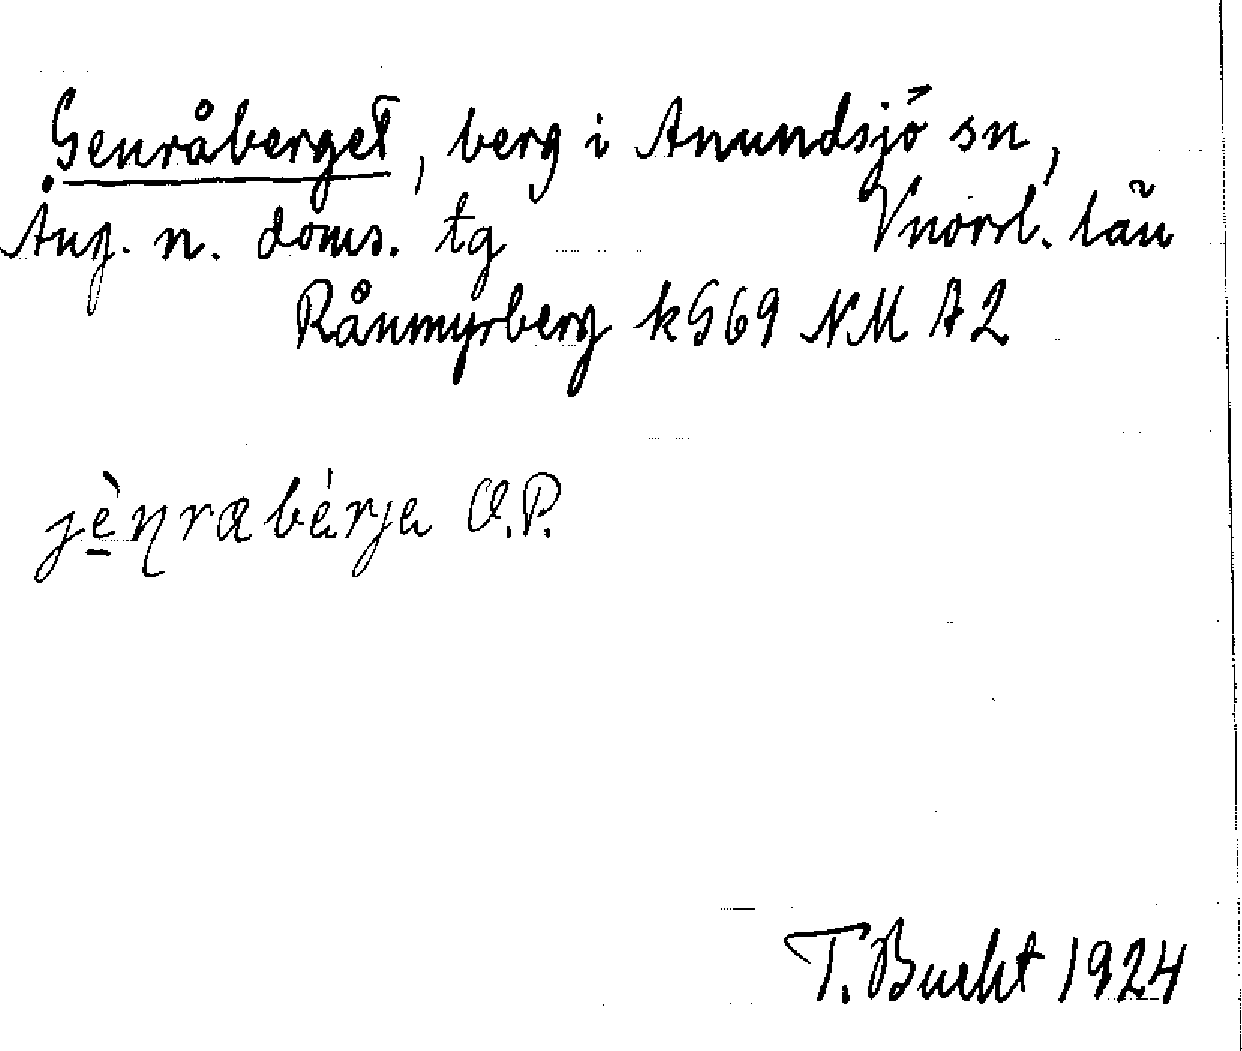 Genråberget, berg i Anundsjö sn,
Ång. n. doms. tg Vnorrl. län
Rånmyrberg kG69 NM A2
jènrabérja O.P.
T. Bucht 1924